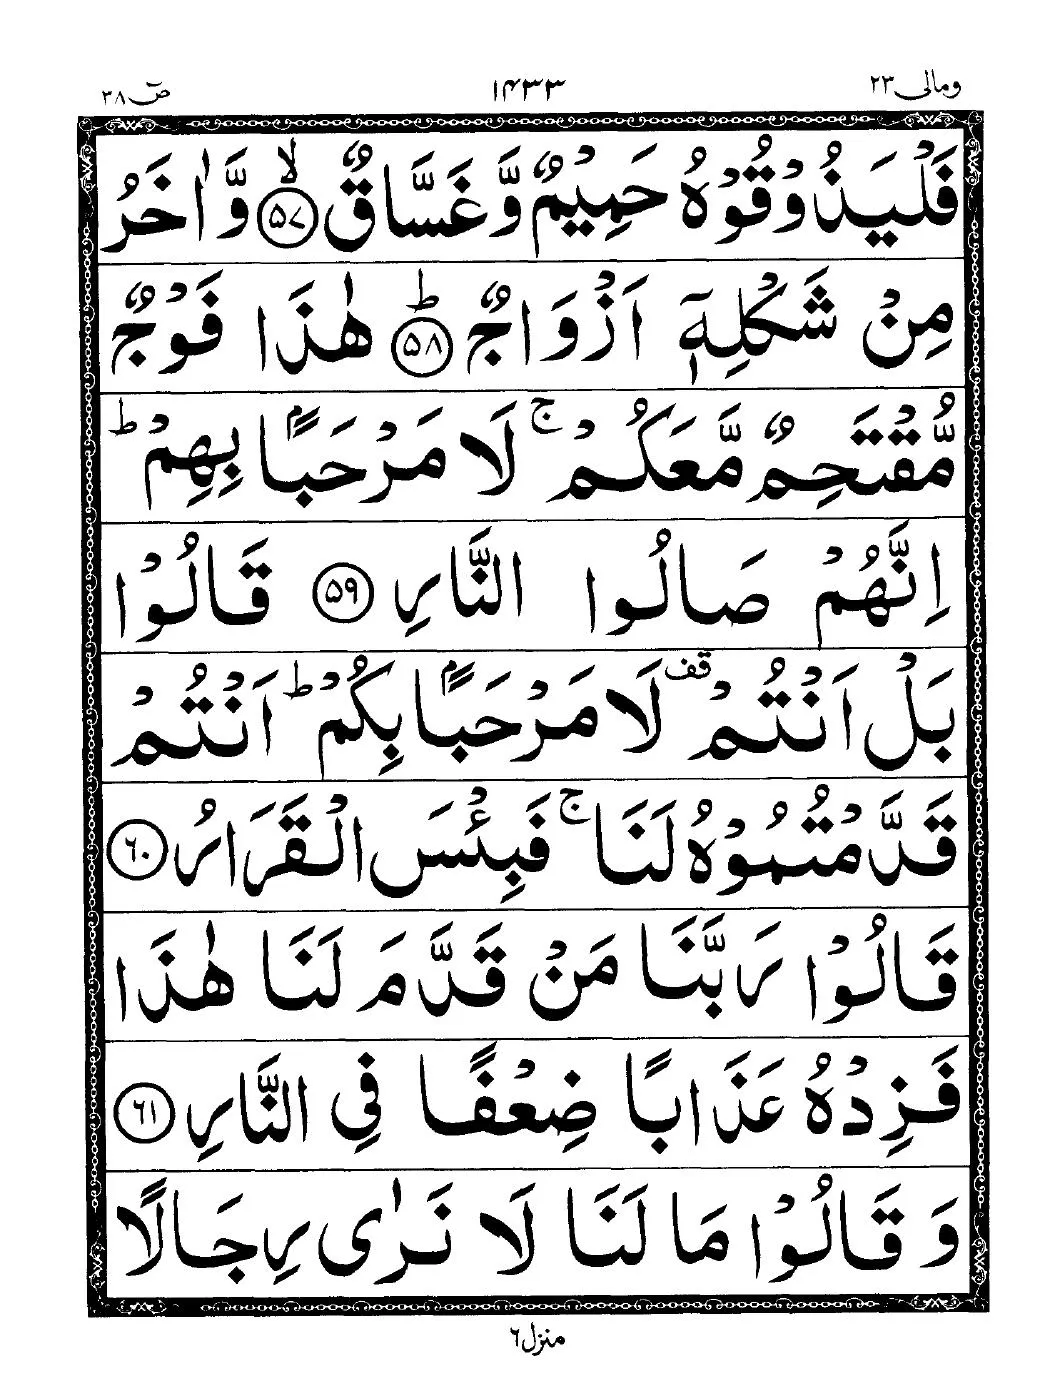 ومالی ۲۳ ۱۴۳۳ صٓ ۳۸
فَلْيَذُوْقُوْهُ حَمِيْمٌ وَّغَسَّاقٌ ۙ﴿۵۷﴾ وَّاٰخَرُ
مِنْ شَكْلِهٖۤ اَزْوَاجٌ ؕ﴿۵۸﴾ هٰذَا فَوْجٌ
مُّقْتَحِمٌ مَّعَكُمْ ۚ لَا مَرْحَبًۢا بِهِمْ ؕ
اِنَّهُمْ صَالُوا النَّارِ ﴿۵۹﴾ قَالُوْا
بَلْ اَنْتُمْ ۟ قف لَا مَرْحَبًۢا بِكُمْ ؕ اَنْتُمْ
قَدَّمْتُمُوْهُ لَنَا ۚ فَبِئْسَ الْقَرَارُ ﴿۶۰﴾
قَالُوْا رَبَّنَا مَنْ قَدَّمَ لَنَا هٰذَا
فَزِدْهُ عَذَابًا ضِعْفًا فِي النَّارِ ﴿۶۱﴾
وَقَالُوْا مَا لَنَا لَا نَرٰى رِجَالًا
منزل ۶